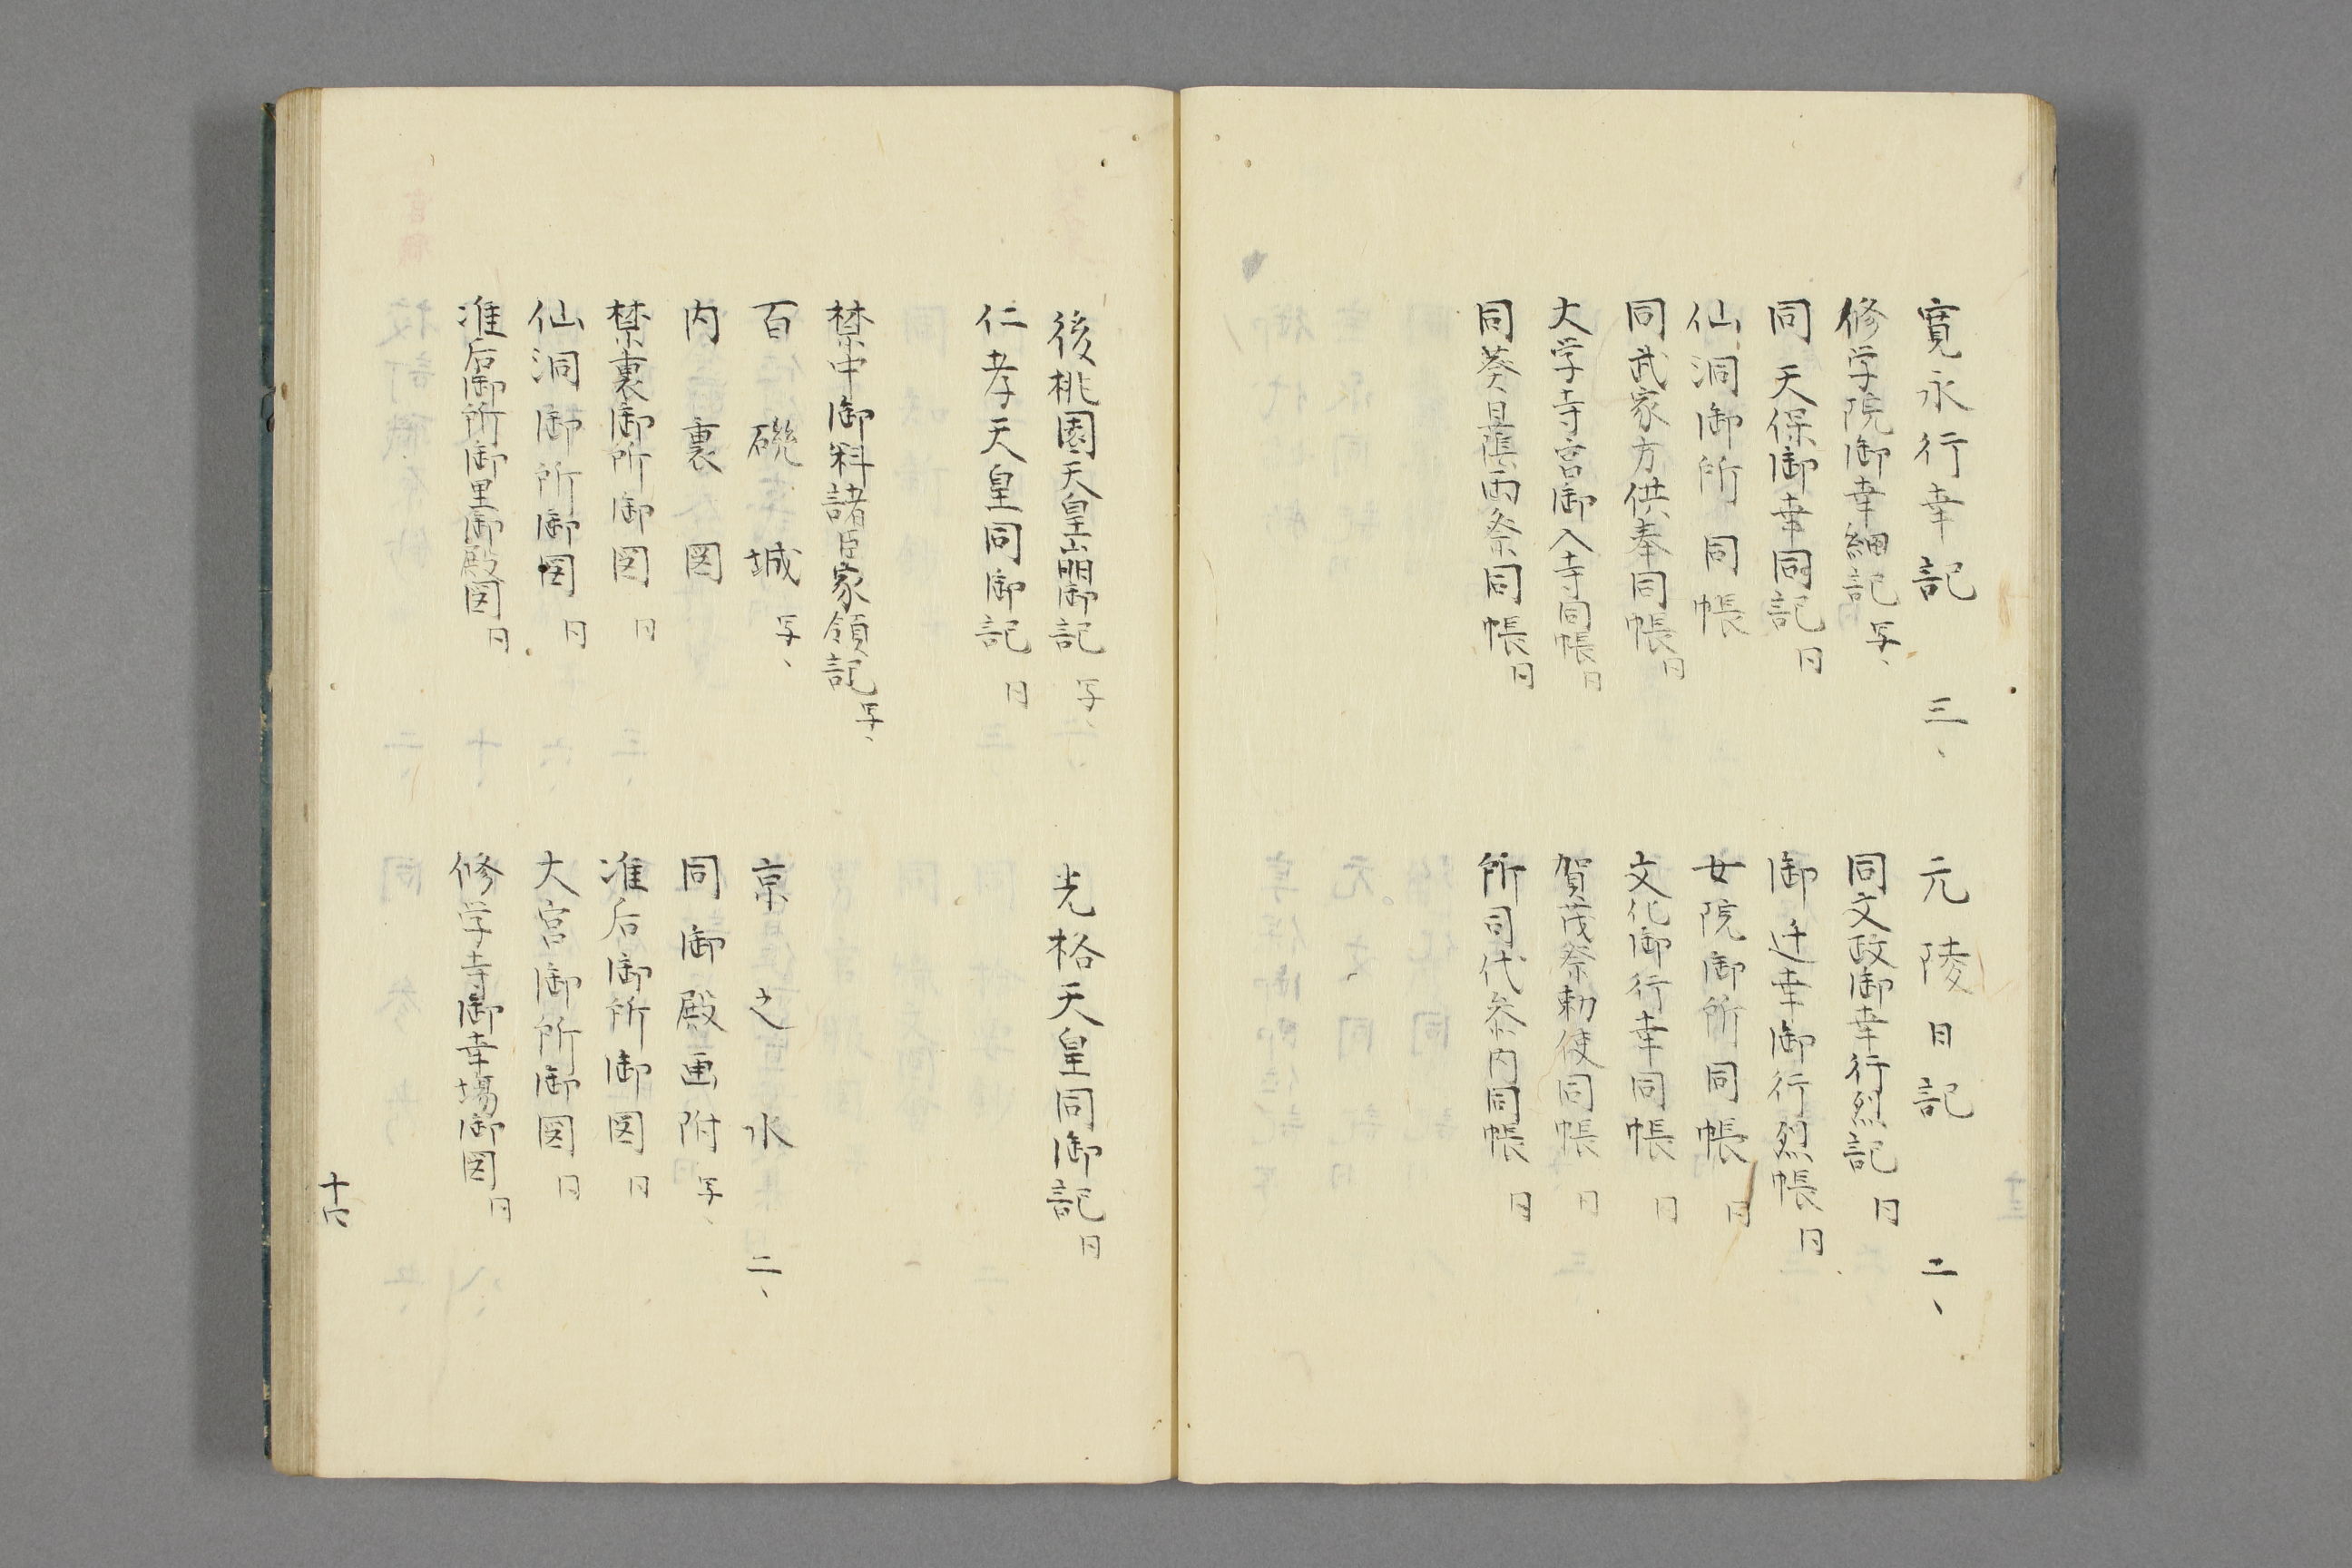 寛永行幸記 三、
元陵日記 二、
修学院御幸細記 写、
同文政御幸行烈記 同
同天保御幸同記 同
御迁幸御行烈帳 同
仙洞御所同帳
女院御所同帳 同
同武家方供奉同帳 同
文化御行幸同帳 同
大学寺宮御入寺同帳 同
賀茂祭勅使同帳 同
同葵日蔭両祭同帳 同
所司代参内同帳 同
後桃園天皇崩御記 写、
光格天皇同御記 同
仁孝天皇同御記 同
禁中御料諸臣家領記 写、
百磯城 写、
京之水 二、
内裏図
同御殿画附 写、
禁裏御所御図 同
准后御所御図 同
仙洞御所御図 同
大宮御所御図 同
准后御所御里御殿図 同
修学寺御幸場御図 同